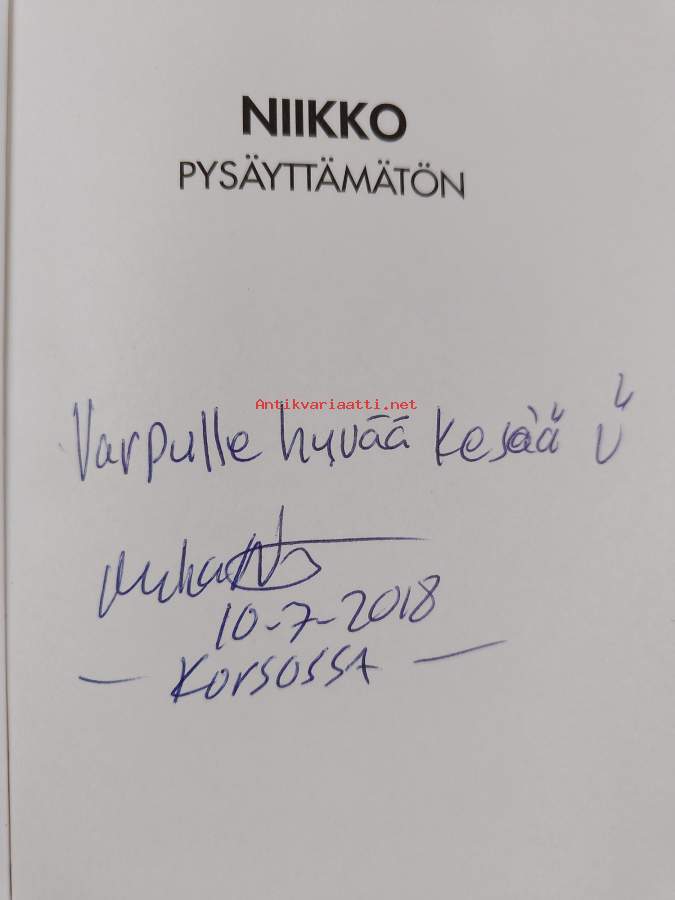 NIIKKO
PYSÄYTTÄMÄTÖN
Antikvariaatti.net
Varpulle hyvää kesää
10-7-2018
- KORSOSSA -